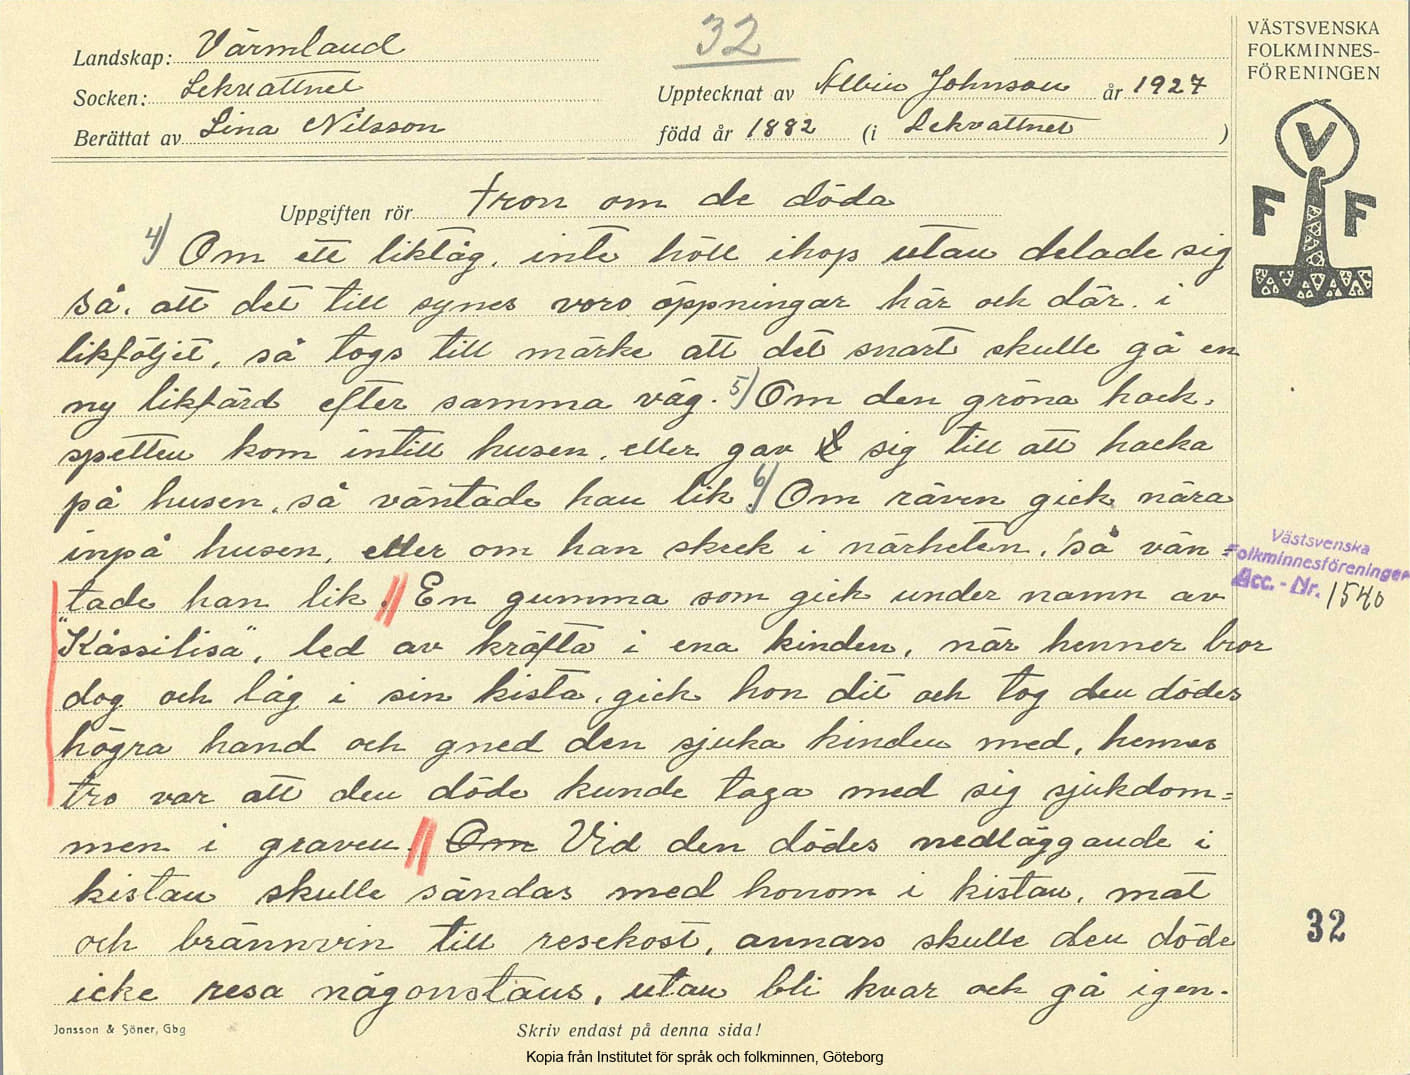 32
VÄSTSVENSKA
FOLKMINNES-
FÖRENINGEN
Landskap: Värmland
Socken: Lekvattnet
Upptecknat av Albin Johnson år 1927
Berättat av Lina Nilsson
född år 1882 (i Lekvattnet )
V
F F
Uppgiften rör tron om de döda
4) Om ett liktåg, inte höll ihop utan delade sig
så, att det till synes voro öppningar här och där i
likföljet, så togs till märke att det snart skulle gå en
ny likfärd efter samma väg. 5) Om den gröna hack-
spetten kom intill husen, eller gav sig till att hacka
på husen, så väntade han lik. 6) Om räven gick nära
inpå husen, eller om han skrek i närheten, så vän=
tade han lik. En gumma som gick under namn av
"Kåssilisa", led av kräfta i ena kinden, när hennes bror
dog och låg i sin kista, gick hon dit och tog den dödes
högra hand och gned den sjuka kinden med, hennes
tro var att den döde kunde taga med sig sjukdom=
men i graven. Om Vid den dödes nedläggande i
kistan skulle sändas med honom i kistan, mat
och brännvin till resekost, annars skulle den döde
icke resa någonstans, utan bli kvar och gå igen.
Västsvenska
Folkminnesföreningen
Acc. - Nr. 1540
32
Jonsson & Söner, Gbg
Skriv endast på denna sida!
Kopia från Institutet för språk och folkminnen, Göteborg